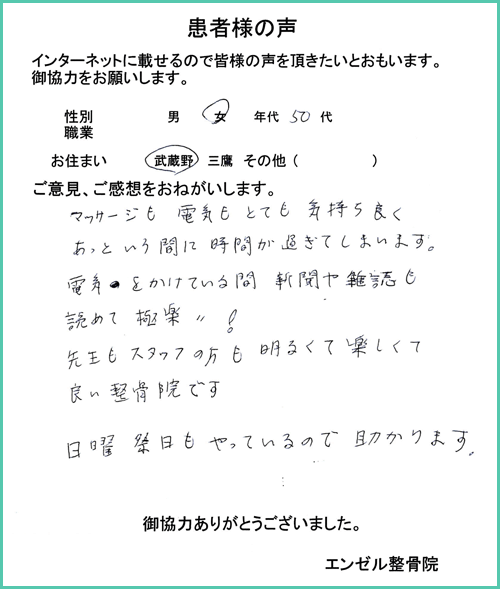 患者様の声
インターネットに載せるので皆様の声を頂きたいとおもいます。
御協力をお願いします。
性別 男 女 年代 50 代
職業
お住まい 武蔵野 三鷹 その他 ( )
ご意見、ご感想をおねがいします。
マッサージも 電気も とても 気持ち良く
あっという間に 時間が 過ぎてしまいます。
電気をかけている間 新聞や 雑誌も
読めて 極楽〃!
先生も スタッフの方も 明るくて 楽しくて
良い 整骨院です
日曜 祭日も やっているので 助かります。
御協力ありがとうございました。
エンゼル整骨院